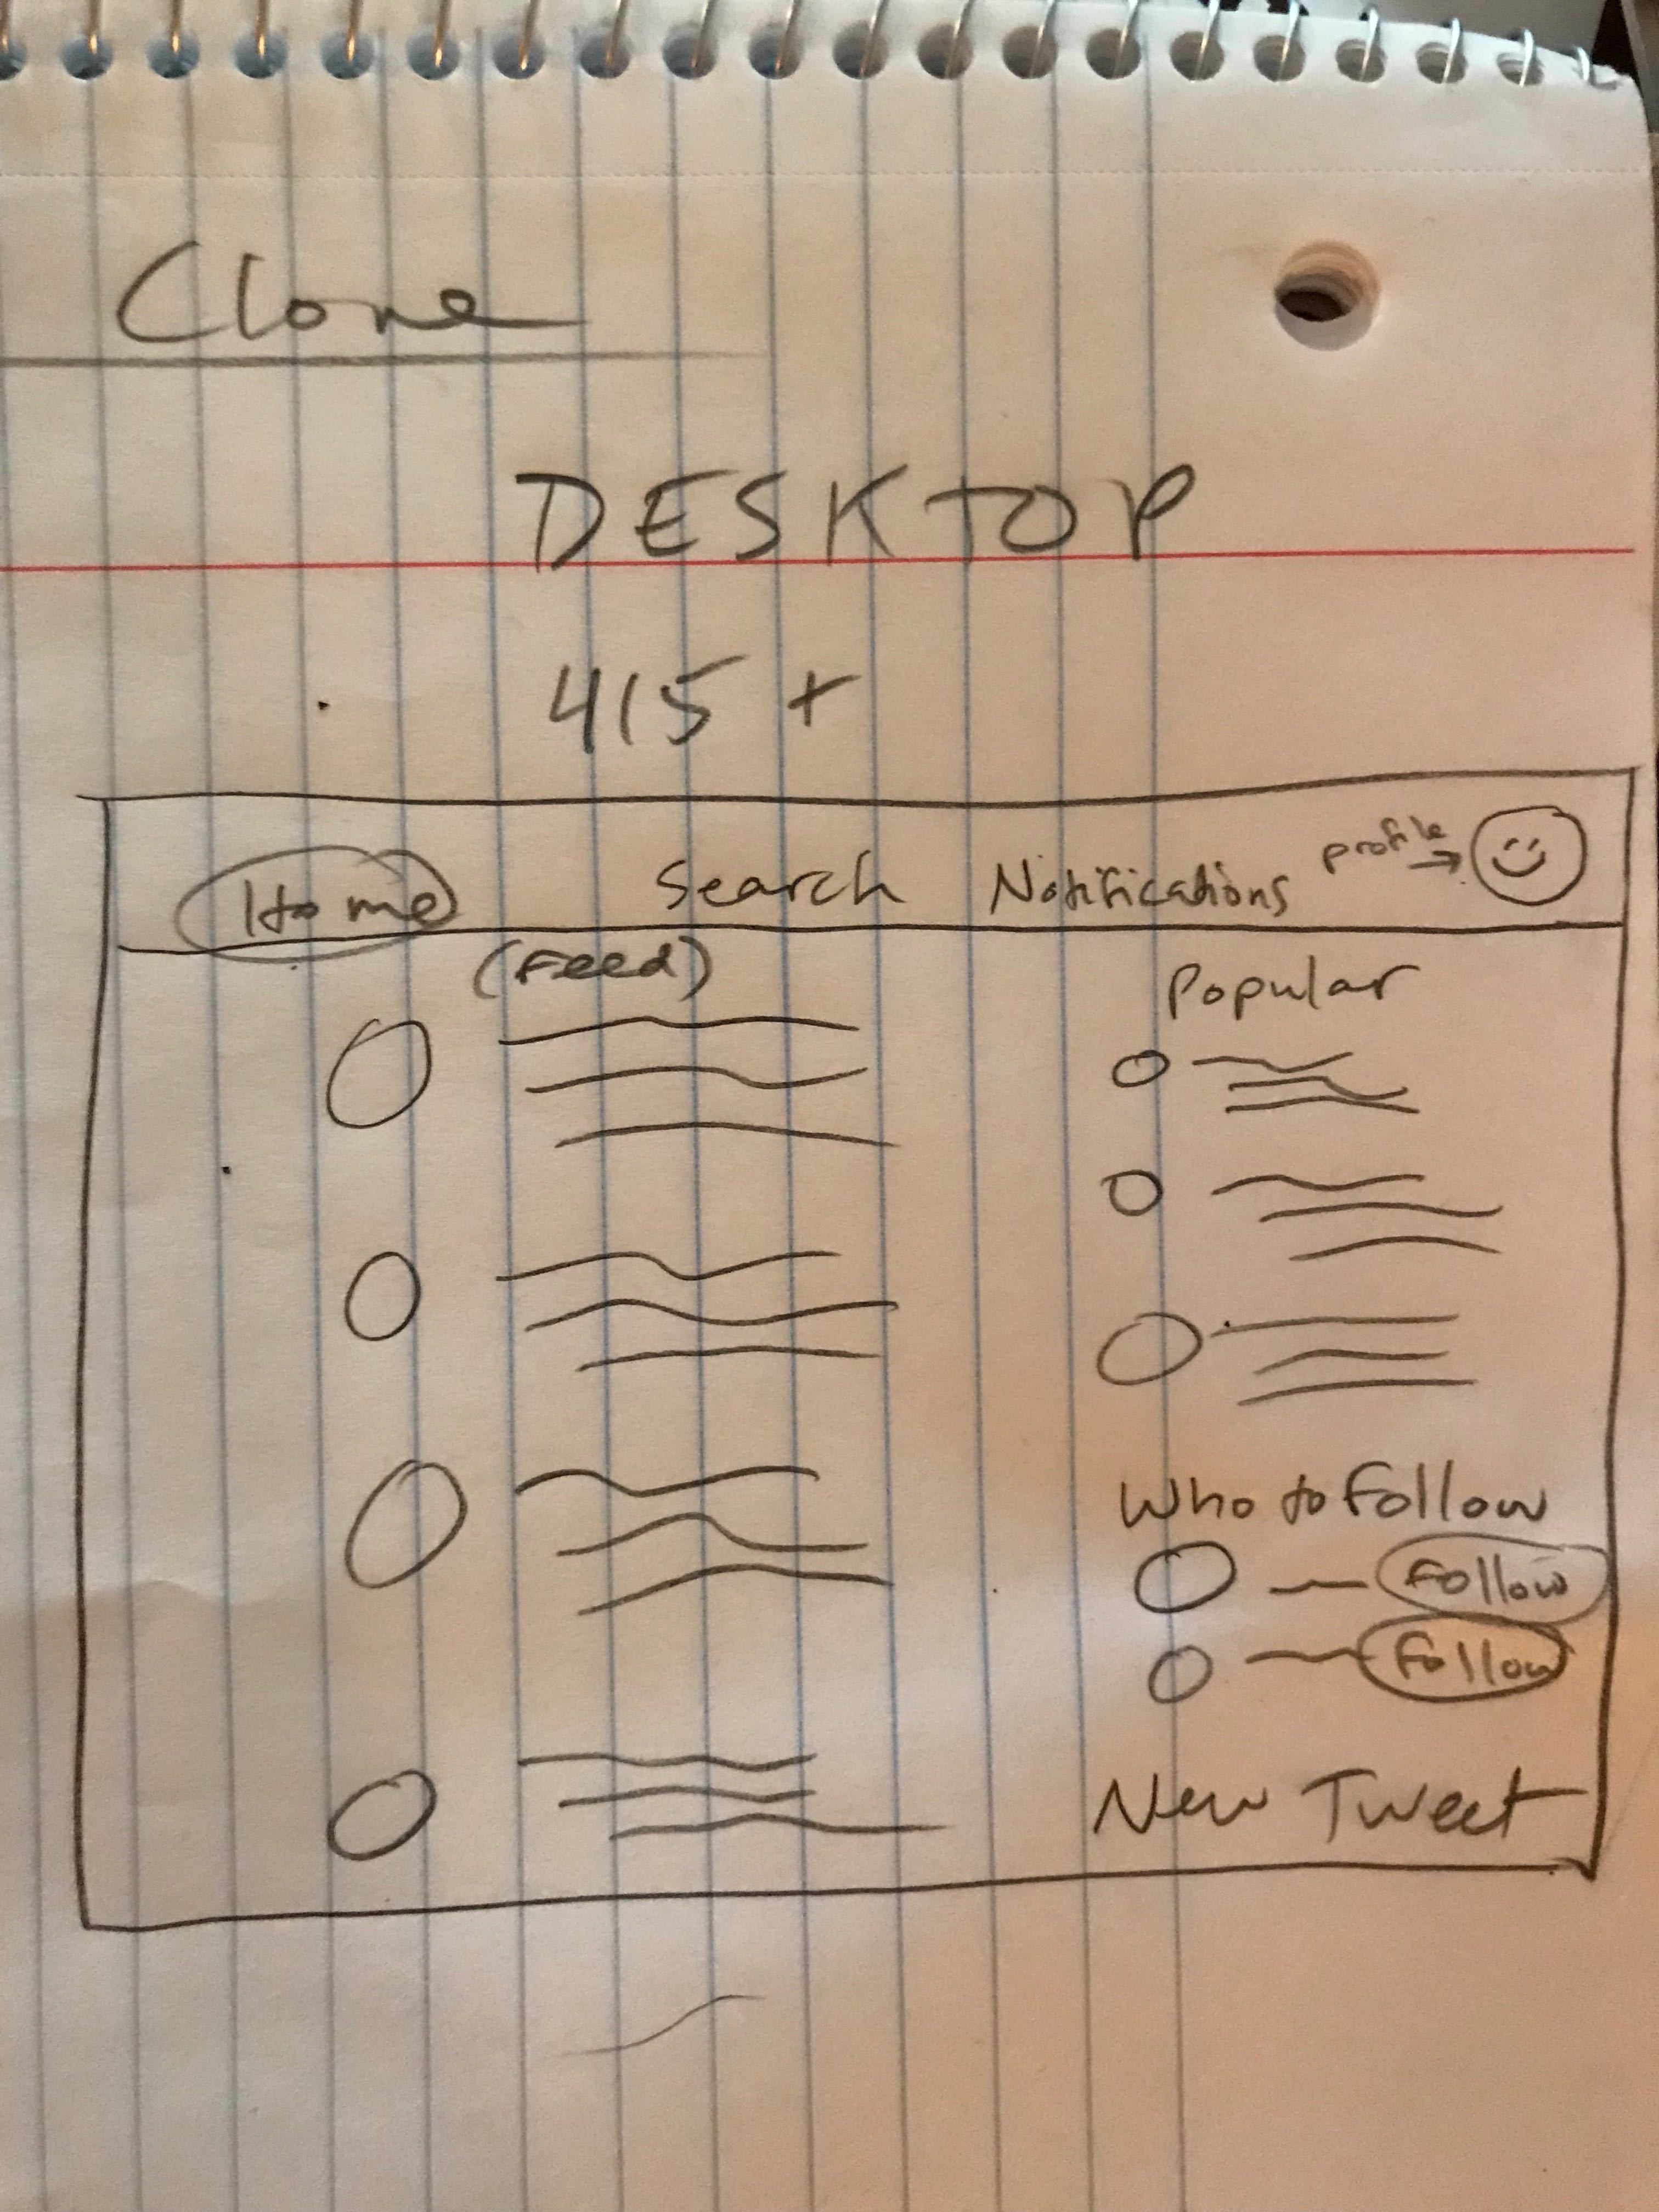 Clone
DESKTOP
415 +
Home Search Notifications profile →
(Feed)
Popular
Who to Follow
Follow
Follow
New Tweet